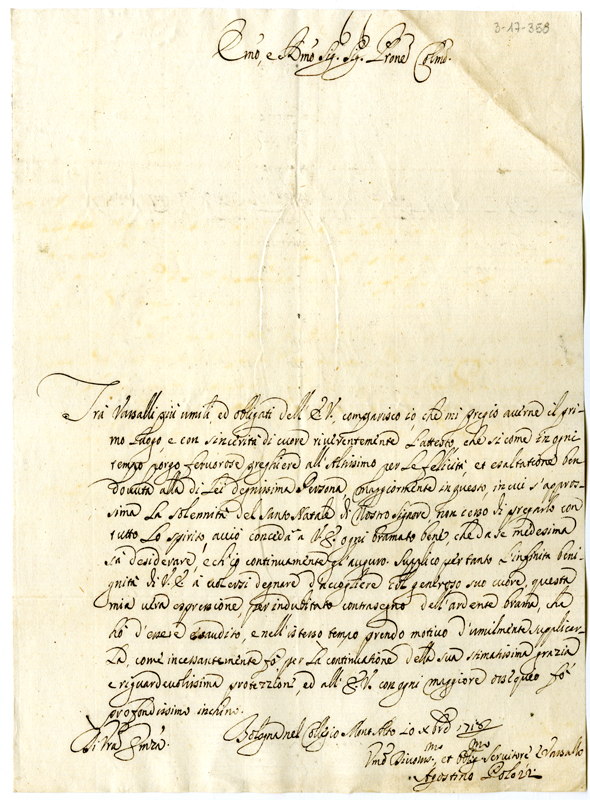 3-17-358
Emo, e Rmo Sig. Sig. Prone Colmo.
Trà Vassalli più umili, ed obligati dell'E.V. comparisco io che mi pregio averne il pri-
mo luogo, e con sincerità di cuore riverentemente l'attesto, che si come in ogni
tempo porgo fervorose preghiere all'Altissimo per le felicità, et esaltatione ben
dovuta alla di Lei degnissima Persona, maggiormente in questo, in cui s'appros-
sima la solennità del Santo Natale di Nostro Signore, non cesso di pregarlo con
tutto lo spirito, acciò conceda à V.E. ogni bramato bene, che da se medesima
sà desiderare, e ch'io continuamente gl'auguro. Supplico per tanto l'infinita beni-
gnità di V.E. à volersi degnare d'accogliere nel generoso suo cuore, questa
mia viva espressione per indubitato contrasegno dell'ardente brama, che
hò d'essere esaudito, e nell'istesso tempo prendo motivo d'umilmente supplicar-
la, come incessantemente fò, per la continuatione della sua stimatissima grazia
e riguardevolissima protezzione, ed all'E.V. con ogni maggiore ossequio fò
profondissimo inchino.
Di Vra Emza.
Bologna nel Collegio Montalto 20 Xbre 1718
Umo Divomo. et Obbmo Servitore e Vassallo
Agostino